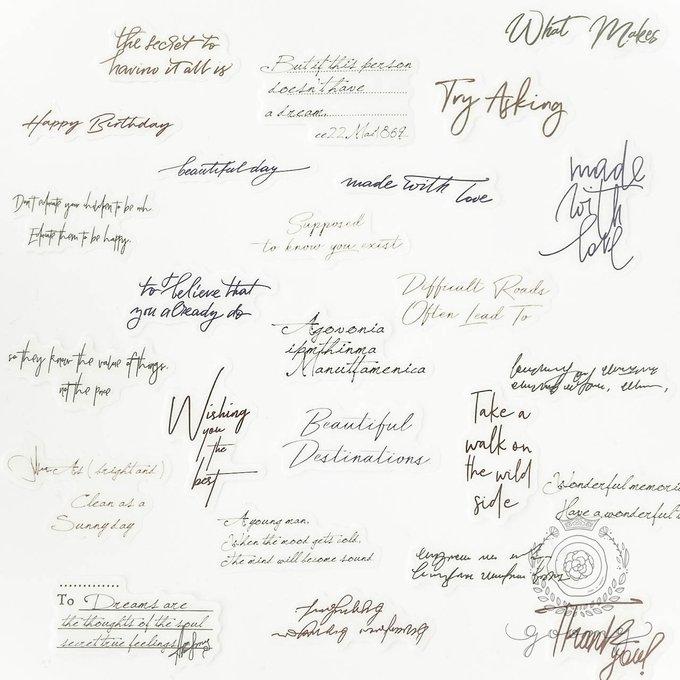 the secret to
having it all is
But if this person
doesn't have
a dream.
What Makes
Try Asking
Happy Birthday
beautiful day
made with love
made
with
love
Don't educate your children to be rich
Educate them to be happy.
Supposed
to know you exist
to believe that
you already do
Difficult Roads
Often Lead To
Agovonia
ipmthinma
Manuttamenica
so they know the value of things.
not the price
Wishing
you
the
best
Beautiful
Destinations
Take a
walk on
the wild
side
As (bright and)
Clean as a
Sunny day
A young man.
When the mood gets cold.
The mind will become sound
Wonderful memori
Have a wonderful
To Dreams are
the thoughts of the soul
secret true feelings
Thank
you!